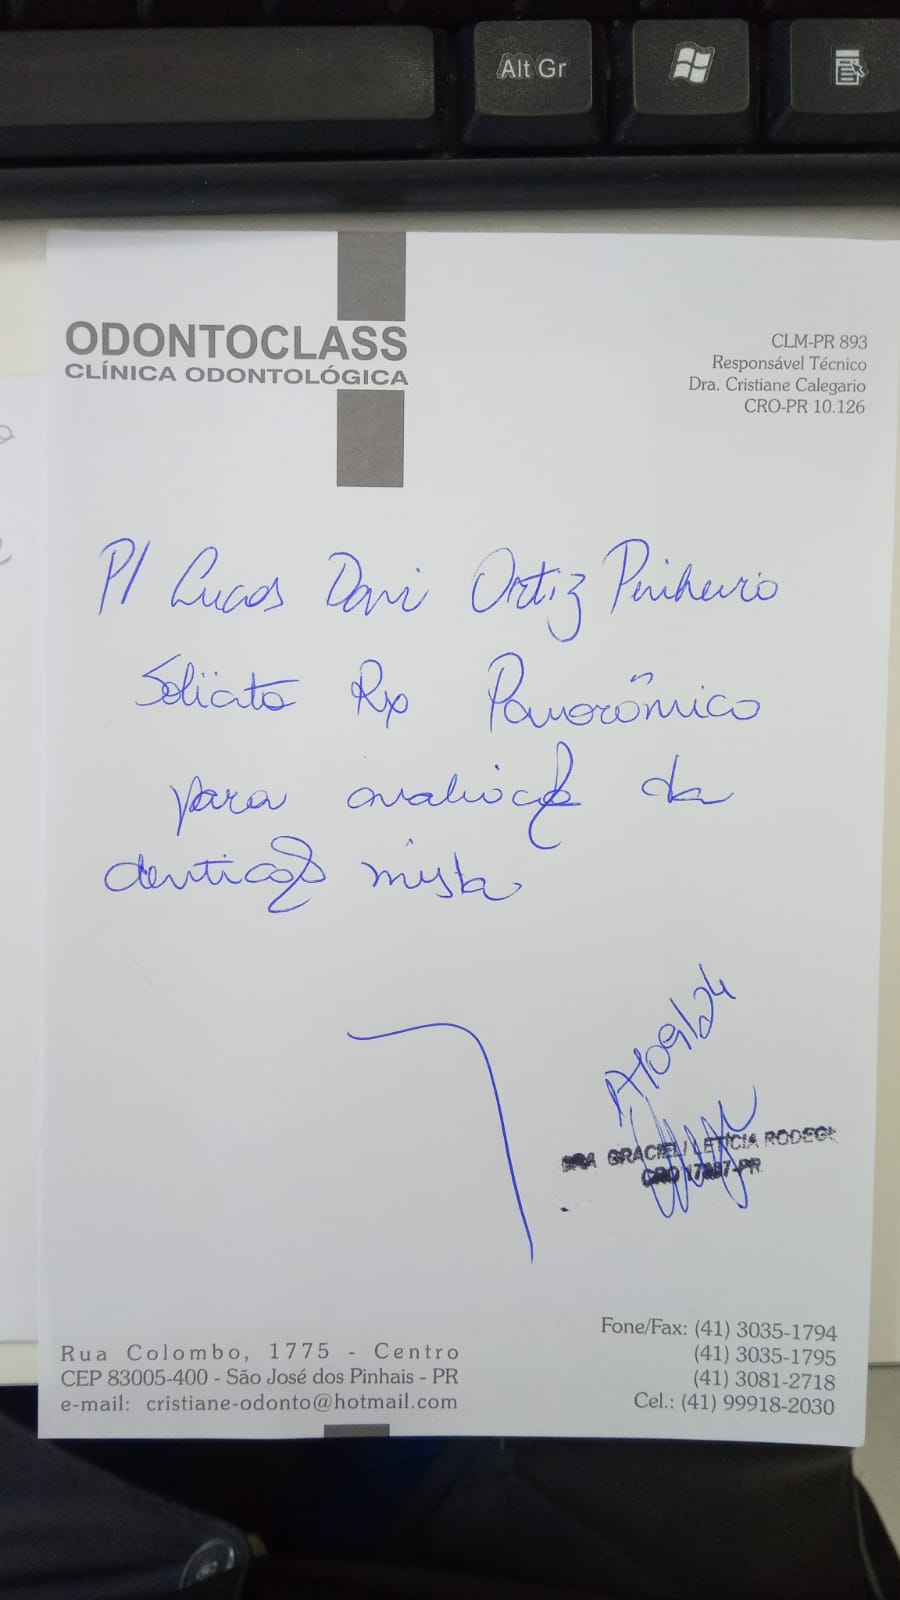 Alt Gr
ODONTOCLASS
CLÍNICA ODONTOLÓGICA
CLM-PR 893
Responsável Técnico
Dra. Cristiane Calegario
CRO-PR 10.126
P/ Lucas Davi Ortiz Pinheiro
Solicito Rx Panorâmico
para avaliação da
dentição mista
/09/24
DRA GRACIELI LETÍCIA
CRO -PR
Rua Colombo, 1775 - Centro
CEP 83005-400 - São José dos Pinhais - PR
e-mail: cristiane-odonto@hotmail.com
Fone/Fax: (41) 3035-1794
(41) 3035-1795
(41) 3081-2718
Cel.: (41) 99918-2030